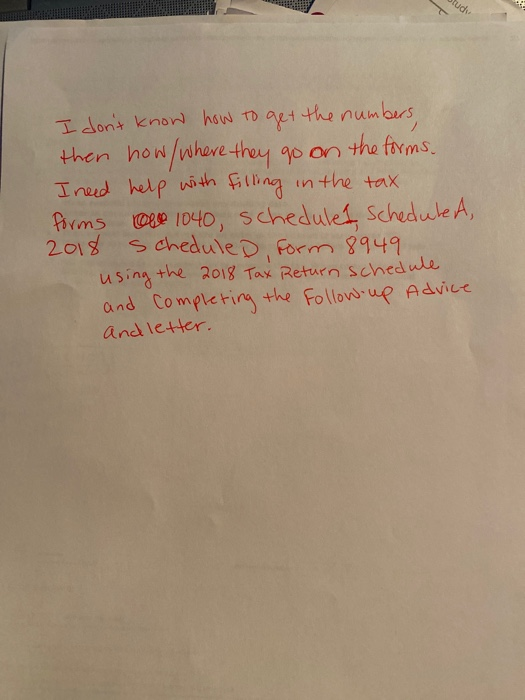 study
I don't know how to get the numbers,
then how/where they go on the forms.
I need help with filling in the tax
forms 1040, schedule 1, Schedule A,
2018 Schedule D, Form 8949
using the 2018 Tax Return schedule
and Completing the Follow-up Advice
and letter.